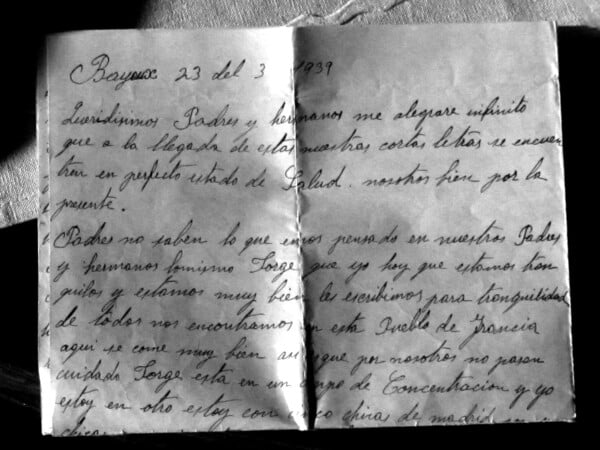 Bayux 23 del 3 1939
Queridisimos Padres y hermanos me alegrare infinito
que a la llegada de estas nuestras cortas letras se encuen
tren en perfecto estado de Salud. nosotros bien por la
presente.
Padres no saben lo que emos pensado en nuestros Padres
y hermanos lomismo Jorge que yo hoy que estamos tran
quilos y estamos muy bien les escribimos para tranquilidad
de todos nos encontramos en esta Pueblo de Francia
aqui se come muy bien asi que por nosotros no pasen
cuidado Jorge esta en un campo de Concentracion y yo
estoy en otro estoy con cinco chicas de madrid